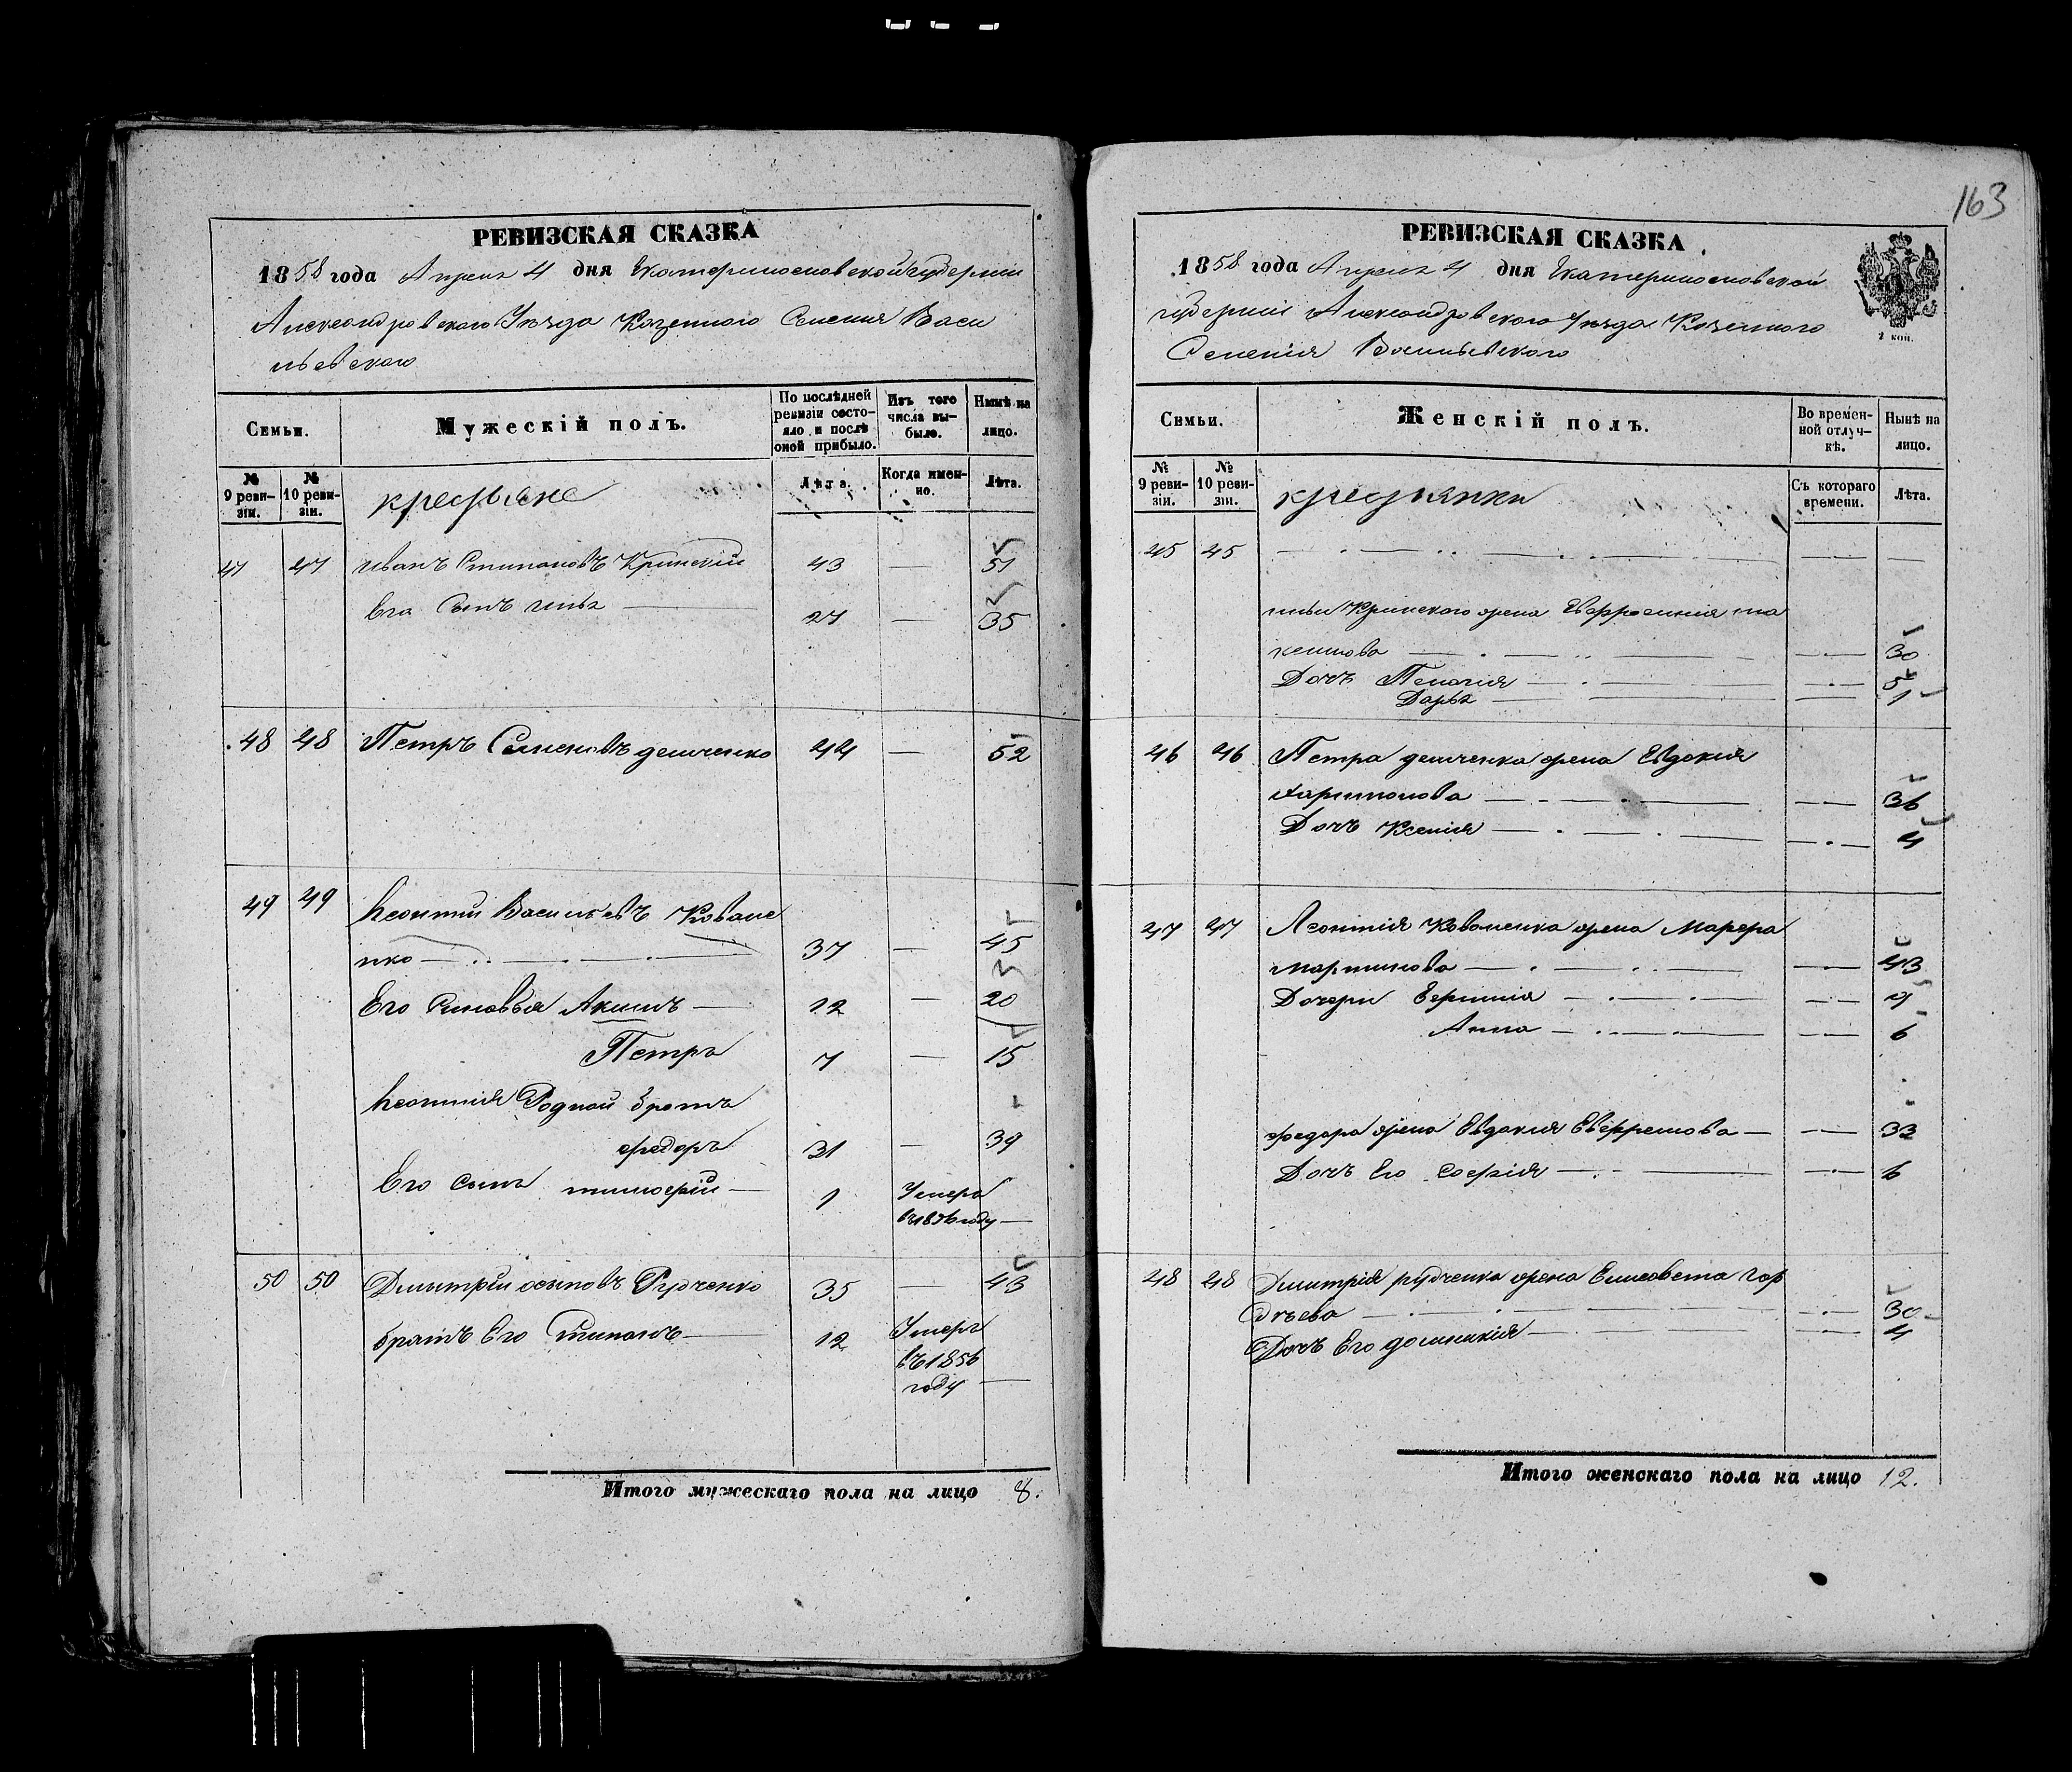 163
РЕВИЗСКАЯ СКАЗКА
1858 года Апреля 4 дня Екатеринославской губернии
Александровского Уезда Казенного Селения Васи
льевского
Семьи.
Мужескій полъ.
По послѣдней ревизіи состояло и послѣ оной прибыло.
Изъ того числа выбыло.
Нынѣ на лицо.
№ 9 ревизіи.
№ 10 ревизіи.
крестьяне
Лѣта.
Когда именно.
Лѣта.
47 47 Иванъ Стипановъ Кринскій 43 — 51
Его Сынъ Илья — 27 — 35
48 48 Петръ Семеновъ Демченко 44 — 52
49 49 Леонтий Васильевъ Ковале
нко — 37 — 45
Его Сыновья Акимъ — 12 — 20
Петръ 7 — 15
Леонтия Родной братъ
Федоръ 31 — 39
Его сынъ Тимофей — 1 Умеръ
въ 1856 году —
50 50 Дмытрий осиповъ Рудченко 35 — 43
братъ Его Стипанъ — 12 Умеръ
въ 1856
году —
Итого мужескаго пола на лицо 8.
РЕВИЗСКАЯ СКАЗКА
1858 года Апреля 4 дня Екатеринославской
губернии Александровского Уезда Казенного
Селения Васильевского
2 коп.
Семьи.
Женскій полъ.
Во временной отлучкѣ.
Нынѣ на лицо.
№ 9 ревизіи.
№ 10 ревизіи.
крестьянки
Съ котораго времени.
Лѣта.
45 45 — — —
Ильи Кринского жена Евфросиния Ма
ксимова — — 30
Дочъ Пелагия — — 5
Дарья — — 1
46 46 Петра Демченка жена Евдокия
Харитонова — — 36
Дочъ Ксения — — 4
47 47 Леонтия Коваленка жена Марфа
Мартинова — — 43
Дочери Ефимия — — 9
Анна — — 6
Федора жена Евдокия Евфремова — — 33
Дочъ Его София — — 6
48 48 Дмитрия рудченка жена Елисавета Гор
дѣева — — 30
Дочъ Его домникия — — 4
Итого женскаго пола на лицо 12.